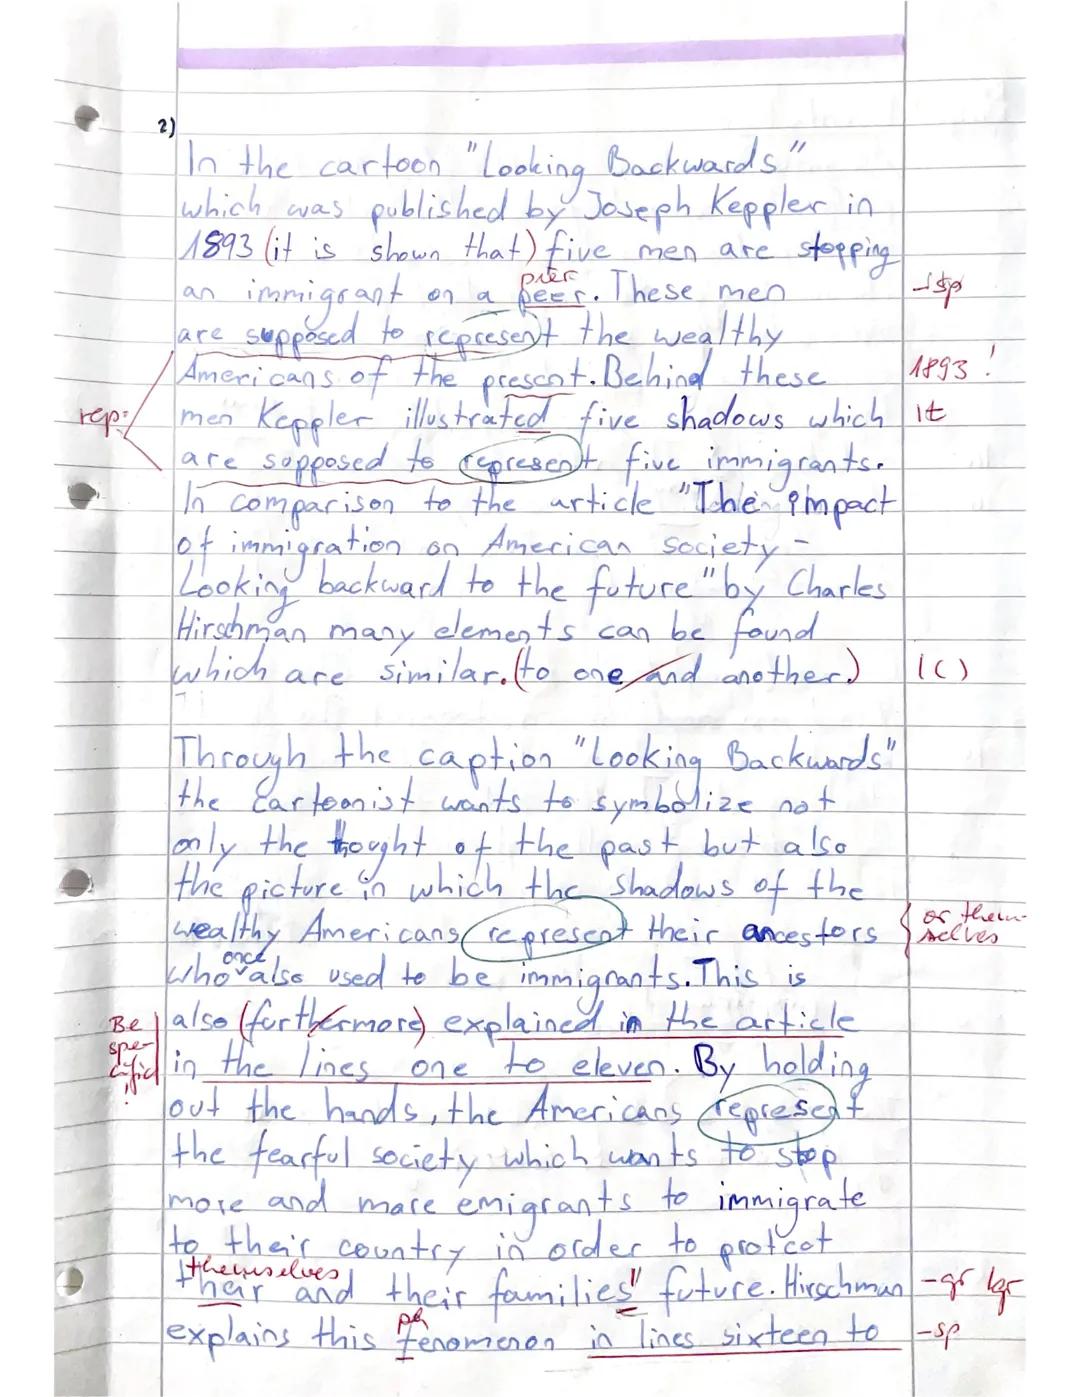 2)
In the cartoon "Looking Backwards"
which was published by Joseph Keppler in
1893 (it is shown that) five men are stopping
pier
an immigrant on a peer. These men -sp
are supposed to represent the wealthy
Americans of the present. Behind these 1893!
rep. men Keppler illustrated five shadows which it
are supposed to represent five immigrants.
In comparison to the article "The impact
of immigration on American society -
Looking backward to the future" by Charles
Hirschman many elements can be found
which are similar. (to one and another.) I()
Through the caption "Looking Backwards"
the cartoonist wants to symbolize not
only the thought of the past but also
the picture in which the shadows of the
wealthy Americans represent their ancestors or them-
selves
once
who also used to be immigrants. This is
Be also (furthermore) explained in the article
spe-
cific! in the lines one to eleven. By holding
out the hands, the Americans represent
the fearful society which wants to stop
more and more emigrants to immigrate
to their country in order to protect
themselves
their and their families" future. Hirschman -gr
ph
explains this fenomenon in lines sixteen to -sp